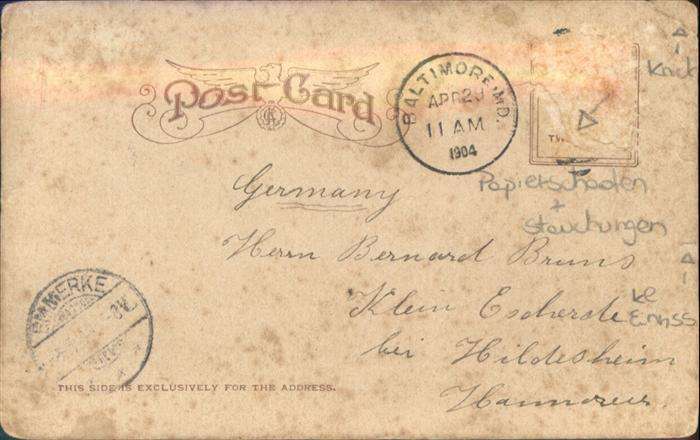 Post Card
BALTIMORE, MD.
APR 2
11 AM
1904
Knick
TW
Papierschaden
+
Stauchungen
Germany
Herrn Bernard Bruns
Klein Escherde
bei Hildesheim
Hannover.
EMMERKE
THIS SIDE IS EXCLUSIVELY FOR THE ADDRESS.